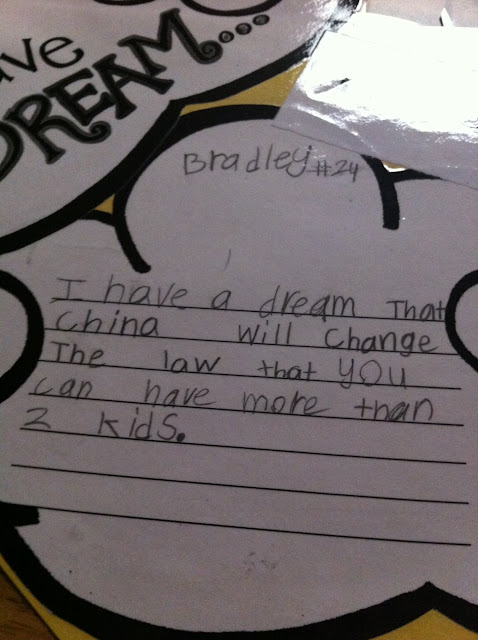 ave
DREAM...
Bradley #24
I have a dream That
China will Change
The law that you
can have more than
2 kids.